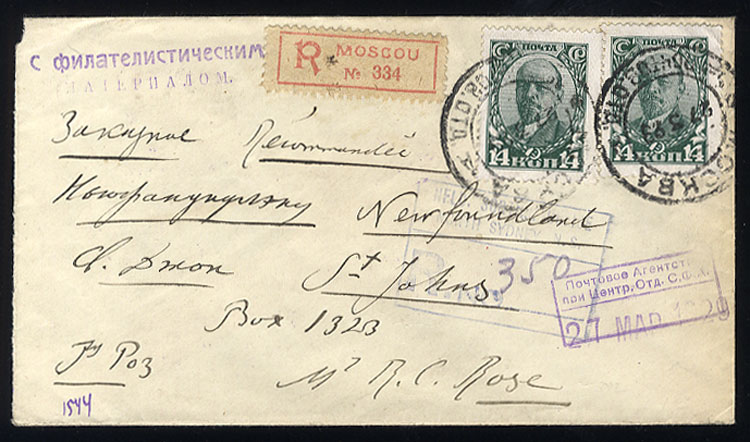 С филателистическим
МАТЕРИАЛОМ.
R MOSCOU
№ 334
ПОЧТА
14 КОП 14
ПОЧТА
14 КОП 14
МОСКВА
Заказное Recommandée
Newfoundland
Св. Джон St Johns
Box 1323
Роз Mr R. C. Rose
R 350
Почтовое Агентство
при Центр. Отд. С.Ф.А.
27 МАР 1929
1544